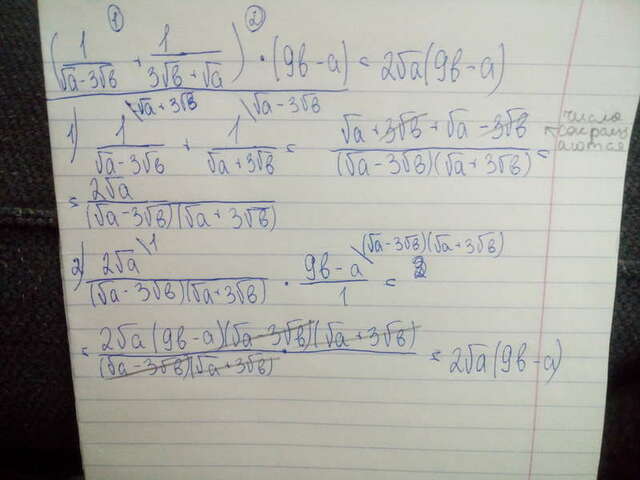 ① ②
(1/(√a-3√b) + 1/(3√b+√a)) · (9b-a) = 2√a(9b-a)
1) 1/(√a-3√b) \√a+3√b + 1/(√a+3√b) \√a-3√b = (√a+3√b+√a-3√b)/((√a-3√b)(√a+3√b)) =
число
сокращ
аются
= 2√a/((√a-3√b)(√a+3√b))
2) 2√a/((√a-3√b)(√a+3√b)) \1 · (9b-a)/1 \(√a-3√b)(√a+3√b) =
= 2√a(9b-a)(√a-3√b)(√a+3√b)/((√a-3√b)(√a+3√b)) = 2√a(9b-a)